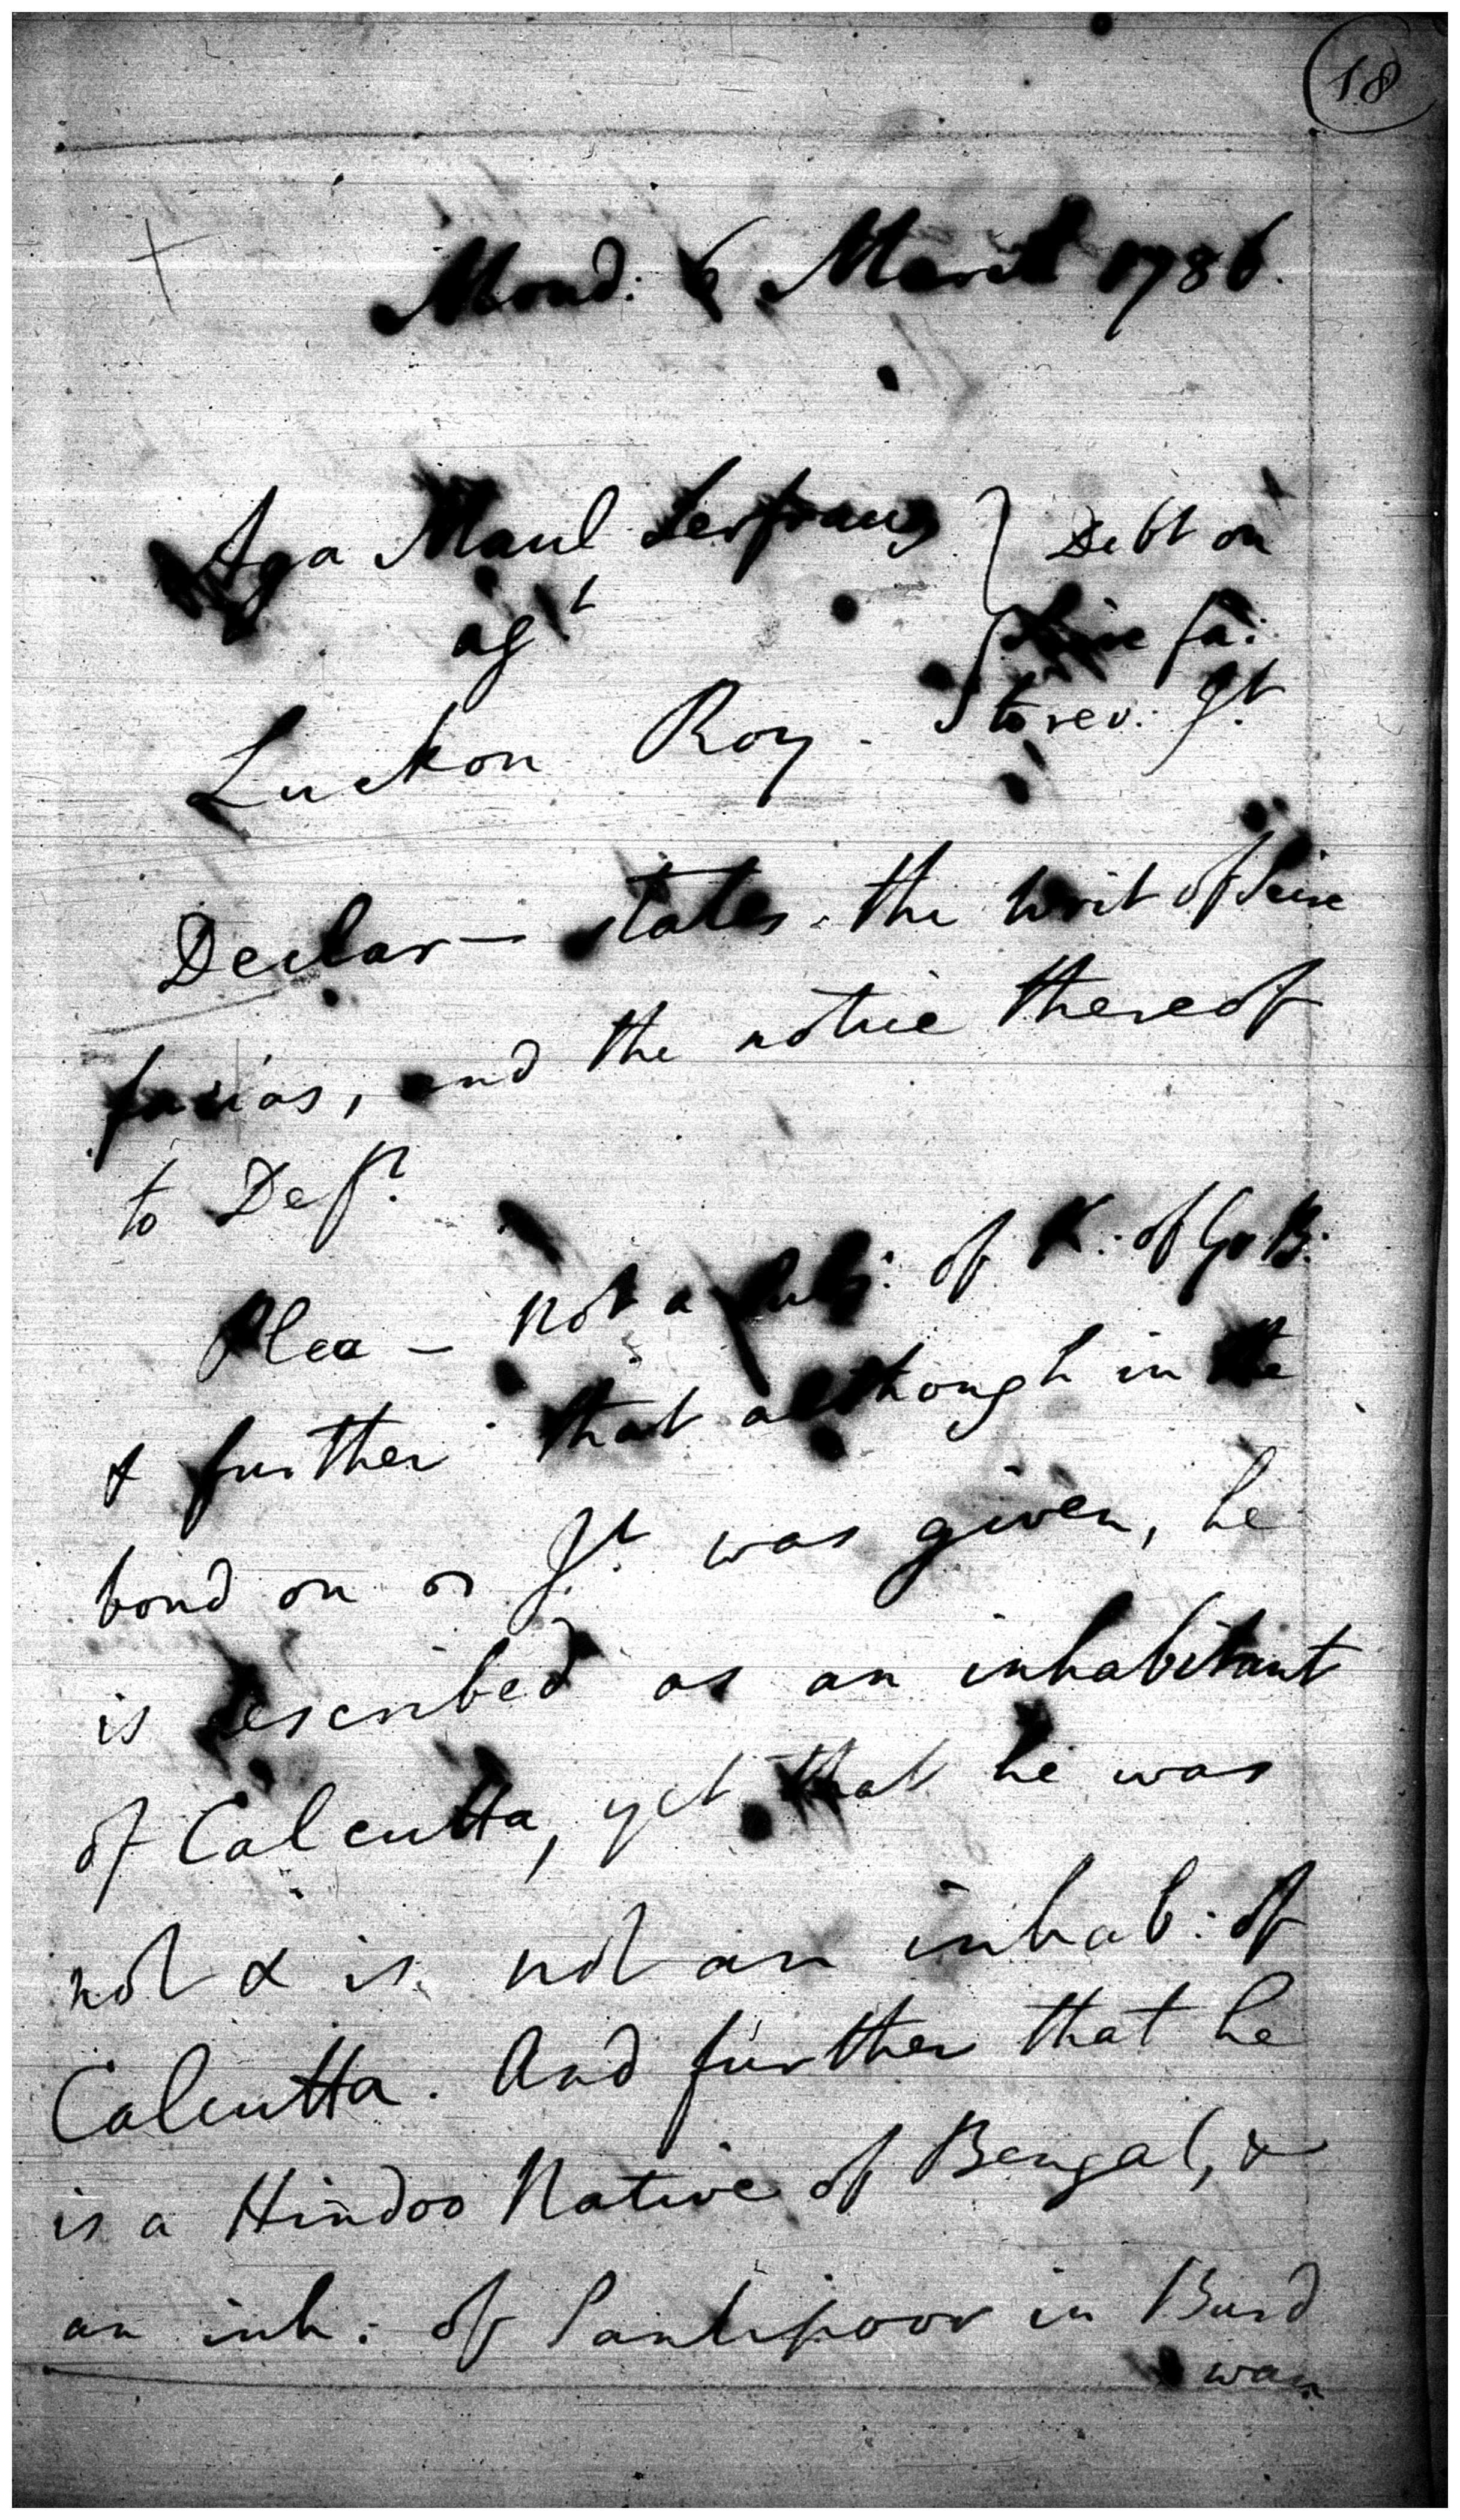 18
Mond: 6 March 1786.
Aga Maul
agt
Debt on
Scire fa:
to rev: Jt
Luckon Roy.
Declar— states the writ of Scire
facias, and the notice thereof
to Deft.
Plea — not a subj: of K: of Gr B:
& further that although in the
bond on wh Jt was given, he
is described as an inhabitant
of Calcutta, yet that he was
not & is not an inhab: of
Calcutta. And further that he
is a Hindoo Native of Bengal, &
an inh: of in Burd
wan